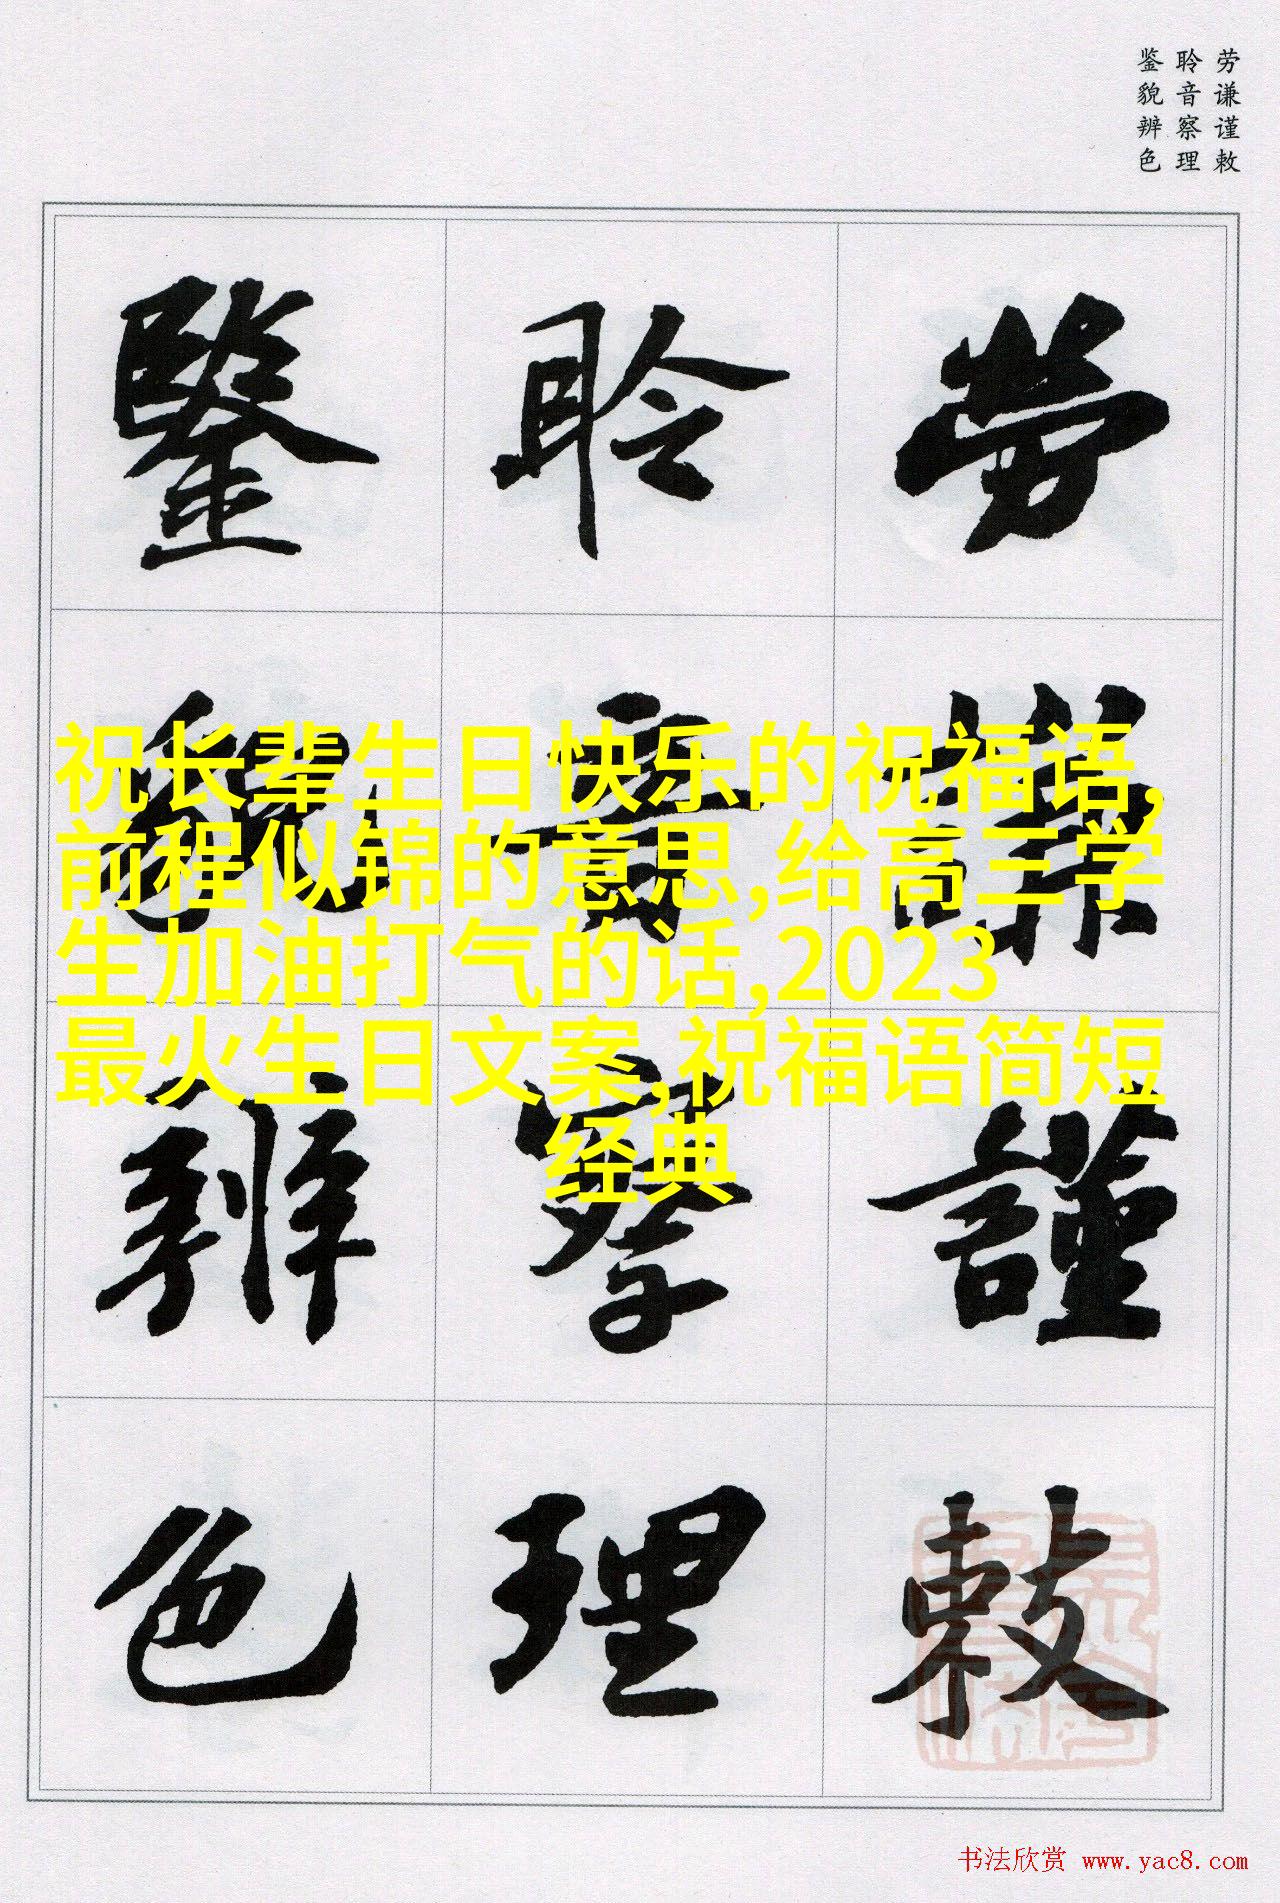 劳谦谨敕
聆音察理
鉴貌辨色
勞謙謹敕
聆音察理
鑒貌辨色
祝长辈生日快乐的祝福语,
前程似锦的意思,给高三学
生加油打气的话,2023
最火生日文案,祝福语简短
经典
书法欣赏 www.yac8.com